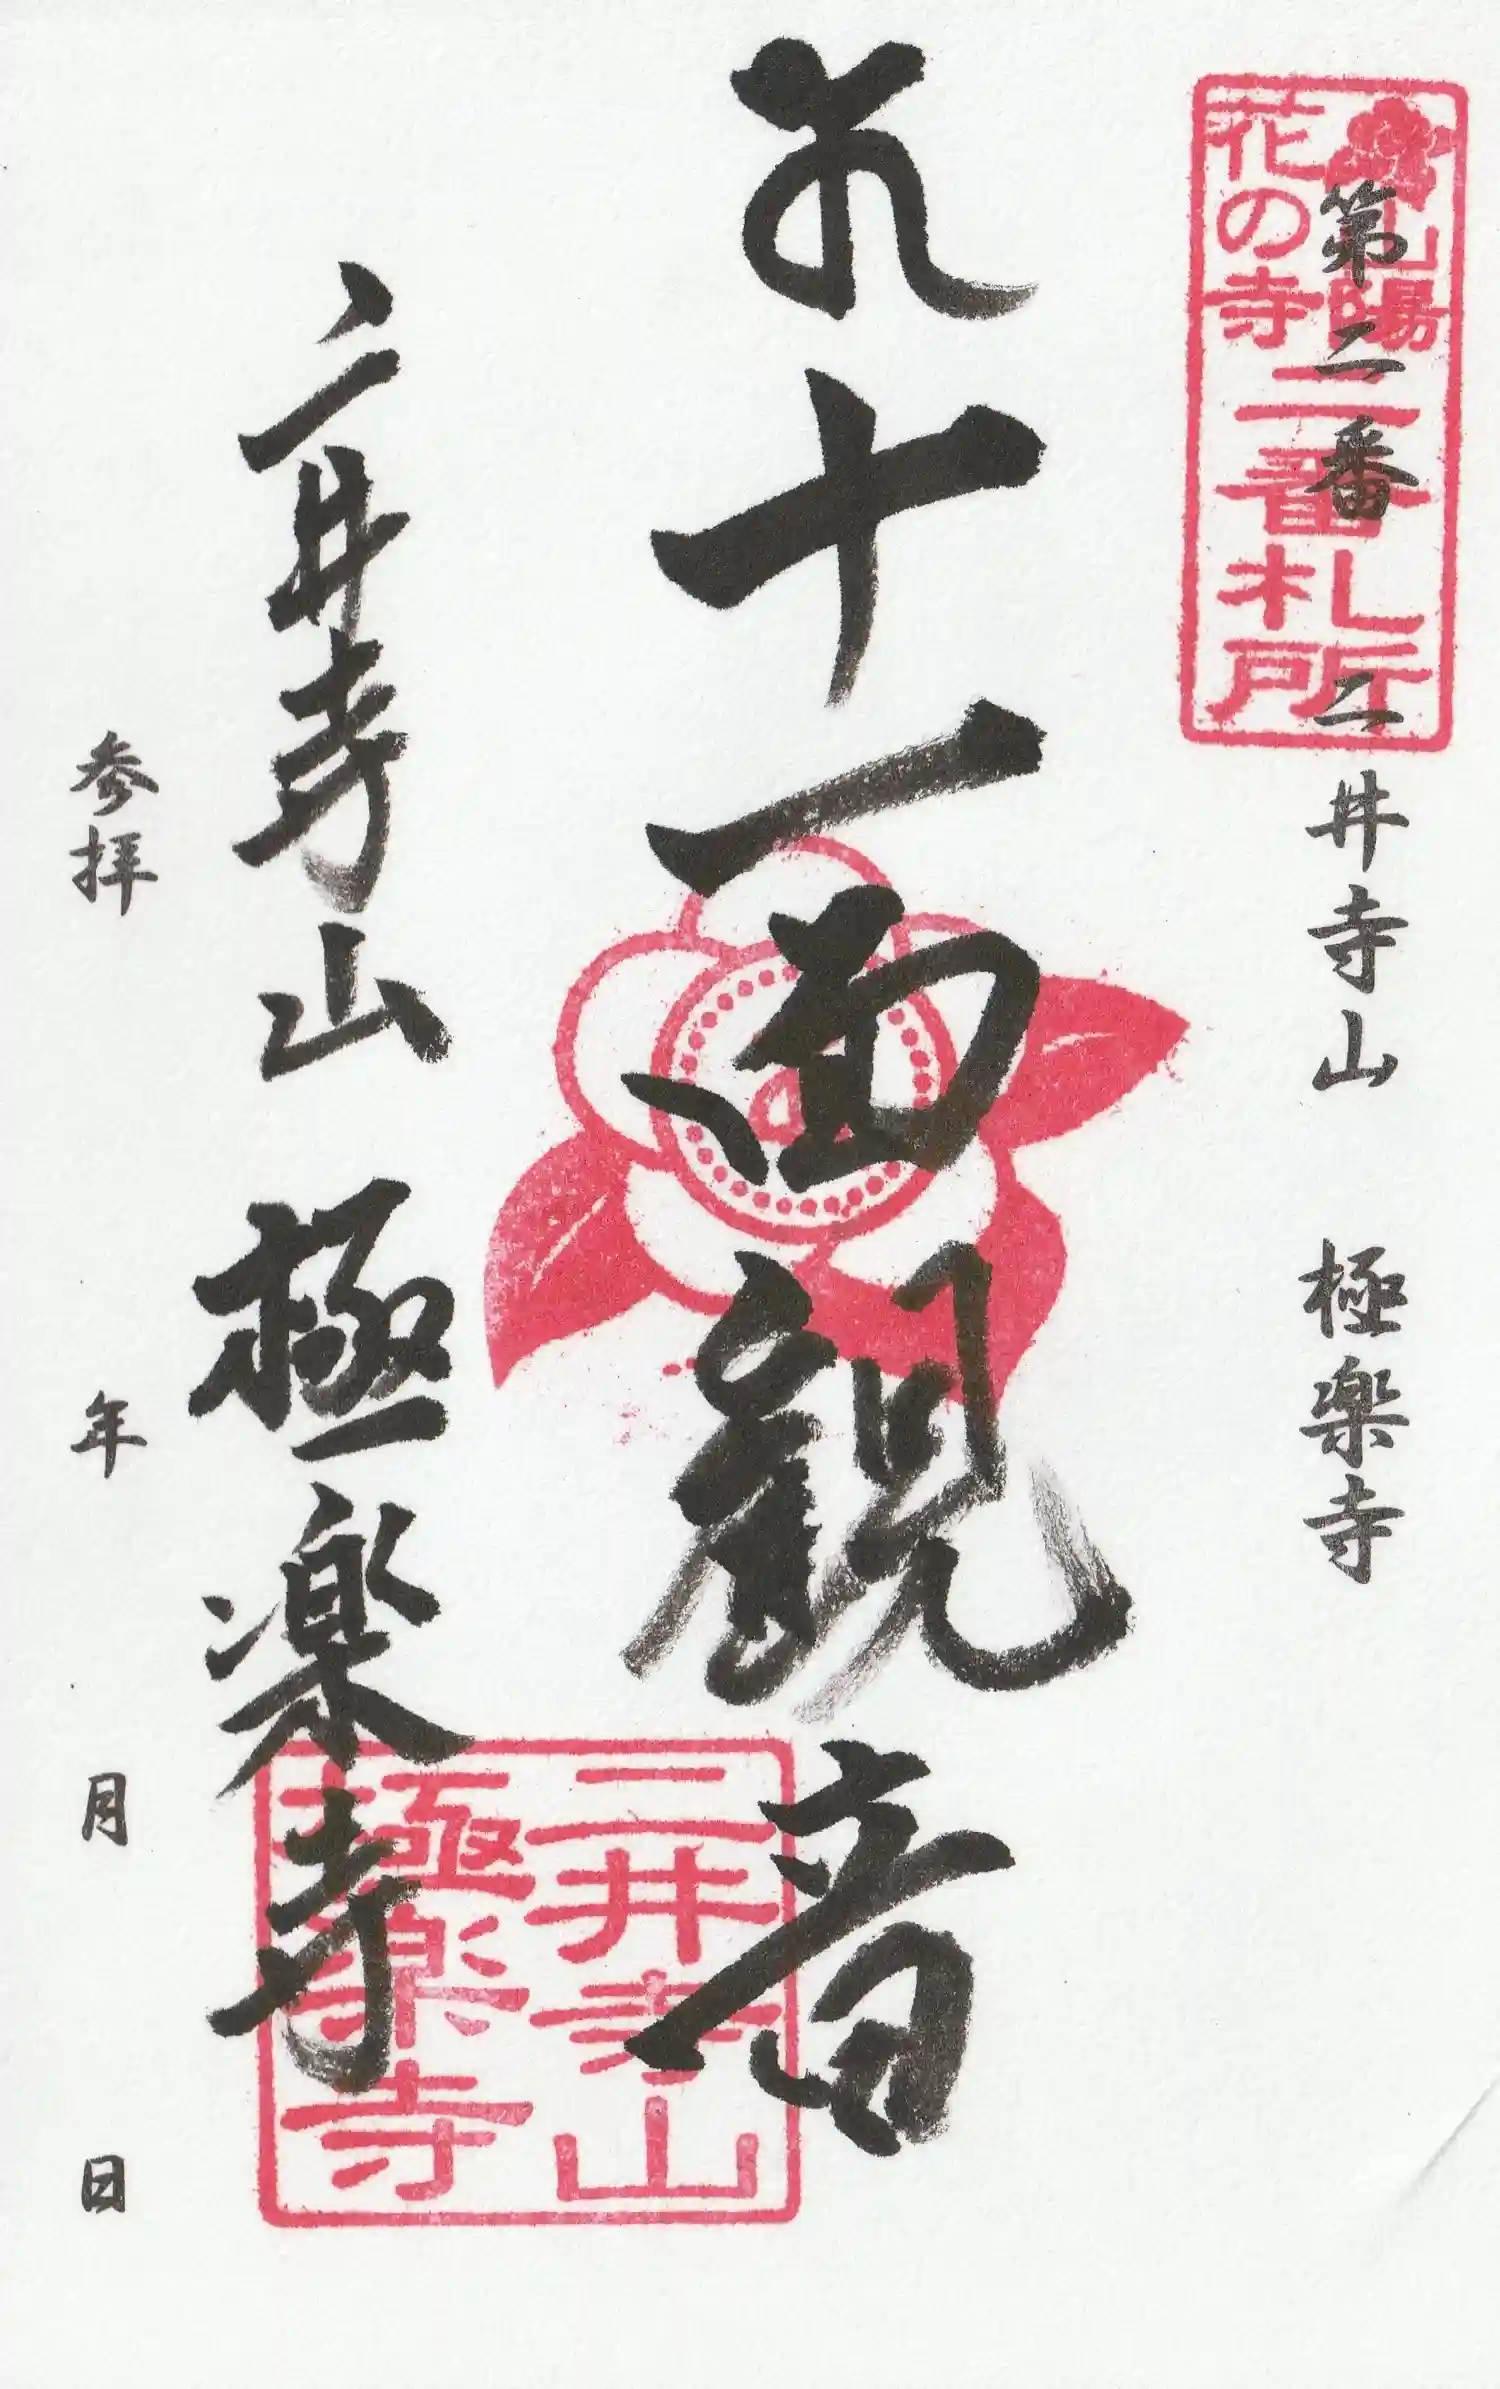 山陽
花の寺
二番札所
第二番 二井寺山 極楽寺
十一面観音
二井寺山 極楽寺
二井寺山
極楽寺
参拝 年 月 日